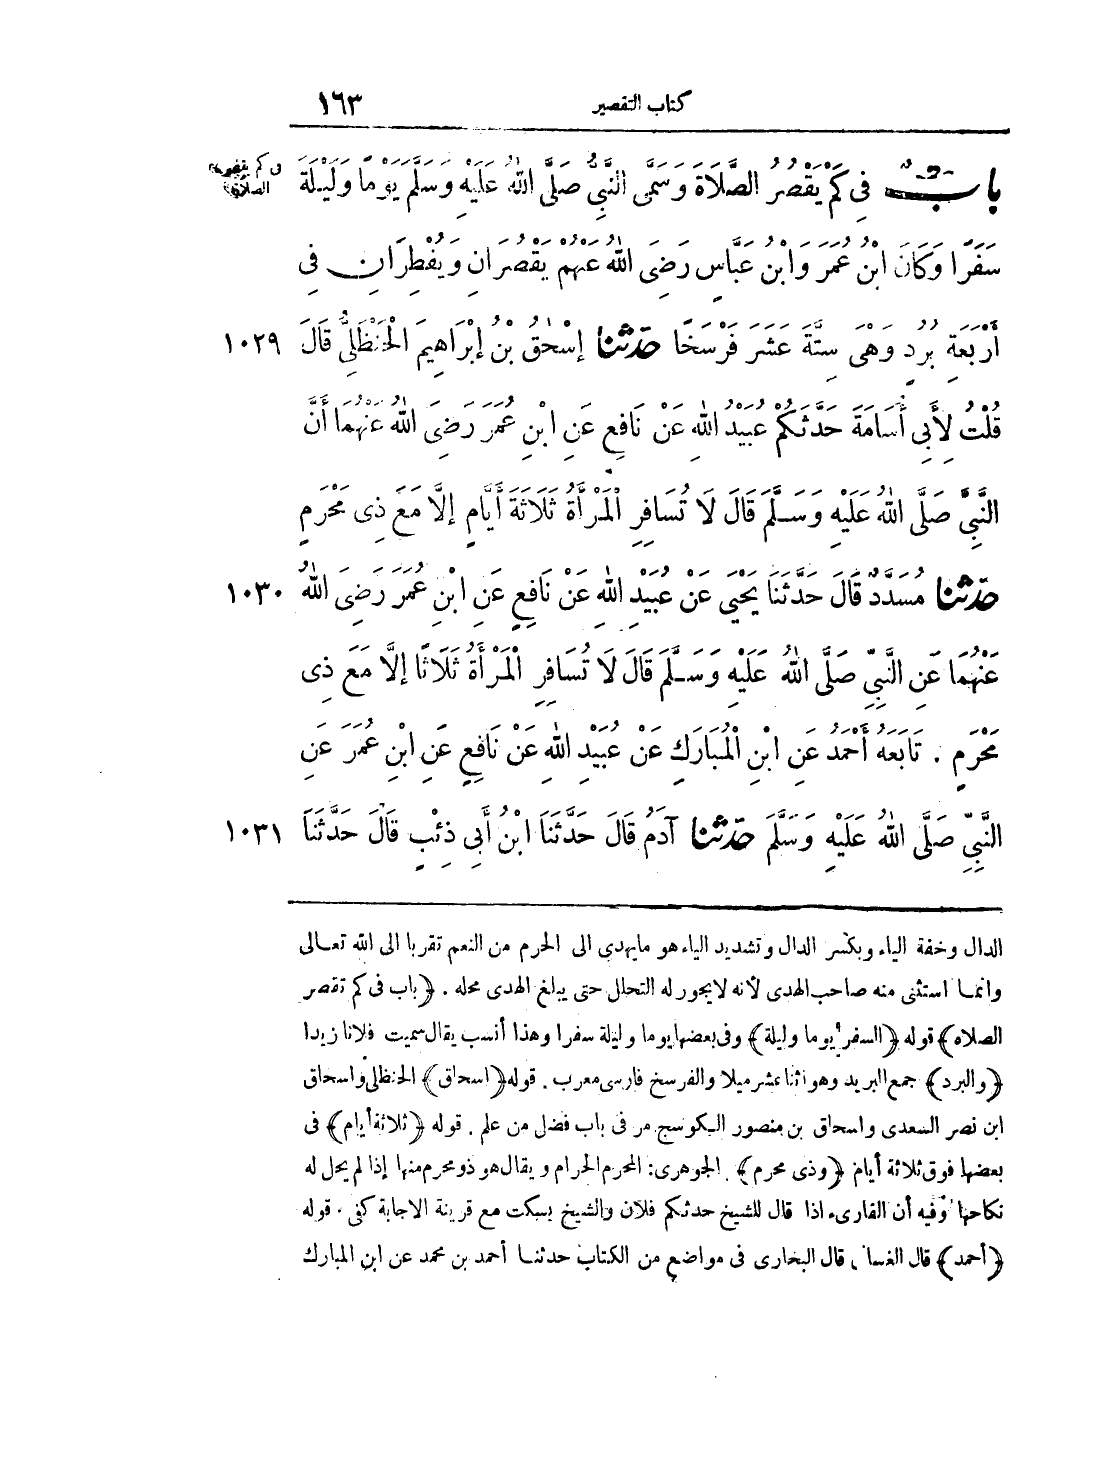 كتاب التقصير ١٦٣
باب فِى كَمْ يَقْصُرُ الصَّلَاةَ وَسَمَّى النَّبِيُّ صَلَّى اللهُ عَلَيْهِ وَسَلَّمَ يَوْمًا وَلَيْلَةً
فى كم يقصر
الصلاة
سَفَرًا وَكَانَ ابْنُ عُمَرَ وَابْنُ عَبَّاسٍ رَضِىَ اللهُ عَنْهُمْ يَقْصُرَانِ وَيُفْطِرَانِ فِى
أَرْبَعَةِ بُرُدٍ وَهْىَ سِتَّةَ عَشَرَ فَرْسَخًا حَدَّثَنَا إِسْحٰقُ بْنُ إِبْرَاهِيمَ الْحَنْظَلِىُّ قَالَ ١٠٢٩
قُلْتُ لِأَبِى أُسَامَةَ حَدَّثَكُمْ عُبَيْدُ اللهِ عَنْ نَافِعٍ عَنِ ابْنِ عُمَرَ رَضِىَ اللهُ عَنْهُمَا أَنَّ
النَّبِىَّ صَلَّى اللهُ عَلَيْهِ وَسَلَّمَ قَالَ لَا تُسَافِرِ الْمَرْأَةُ ثَلَاثَةَ أَيَّامٍ إِلَّا مَعَ ذِى مَحْرَمٍ
حَدَّثَنَا مُسَدَّدٌ قَالَ حَدَّثَنَا يَحْيَى عَنْ عُبَيْدِ اللهِ عَنْ نَافِعٍ عَنِ ابْنِ عُمَرَ رَضِىَ اللهُ ١٠٣٠
عَنْهُمَا عَنِ النَّبِىِّ صَلَّى اللهُ عَلَيْهِ وَسَلَّمَ قَالَ لَا تُسَافِرِ الْمَرْأَةُ ثَلَاثًا إِلَّا مَعَ ذِى
مَحْرَمٍ . تَابَعَهُ أَحْمَدُ عَنِ ابْنِ الْمُبَارَكِ عَنْ عُبَيْدِ اللهِ عَنْ نَافِعٍ عَنِ ابْنِ عُمَرَ عَنِ
النَّبِىِّ صَلَّى اللهُ عَلَيْهِ وَسَلَّمَ حَدَّثَنَا آدَمُ قَالَ حَدَّثَنَا ابْنُ أَبِى ذِئْبٍ قَالَ حَدَّثَنَا ١٠٣١
الدال وخفة الياء وبكسر الدال وتشديد الياء هو مايهدى الى الحرم من النعم تقربا الى الله تعالى
وانما استثنى منه صاحب الهدى لأنه لايجوز له التحلل حتى يبلغ الهدى محله . ﴿باب فى كم تقصر
الصلاه﴾ قوله ﴿السفر يوما وليلة﴾ وفى بعضها يوما وليلة سفرا وهذا أنسب يقال سميت فلانا زيدا
﴿والبرد﴾ جمع البريد وهو اثنا عشر ميلا والفرسخ فارسى معرب . قوله ﴿اسحاق﴾ الحنظلى واسحاق
ابن نصر السعدى واسحاق بن منصور الكوسج مر فى باب فضل من علم . قوله ﴿ثلاثة أيام﴾ فى
بعضها فوق ثلاثة أيام ﴿وذى محرم﴾ . الجوهرى: المحرم الحرام ويقال هو ذو محرم منها إذا لم يحل له
نكاحها وفيه أن القارىء اذا قال للشيخ حدثكم فلان والشيخ يسكت مع قرينة الاجابة كفى . قوله
﴿أحمد﴾ قال الغسانى قال البخارى فى مواضع من الكتاب حدثنا أحمد بن محمد عن ابن المبارك